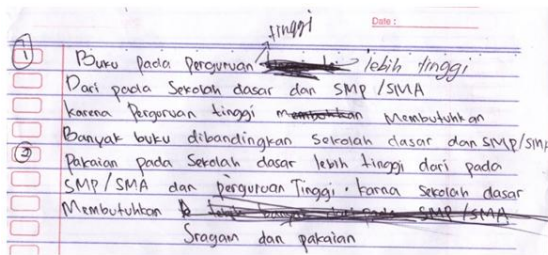 Date :
tinggi
1 Buku pada perguruan lebih tinggi
Dari pada Sekolah dasar dan SMP/SMA
karena Pergoruan tinggi Membutuhkan
Banyak buku dibandingkan Sekolah dasar dan SMP/SMA
2 Pakaian pada Sekolah dasar lebih tinggi dari pada
SMP/SMA dan perguruan Tinggi. karna Sekolah dasar
Membutuhkan
Sragam dan pakaian